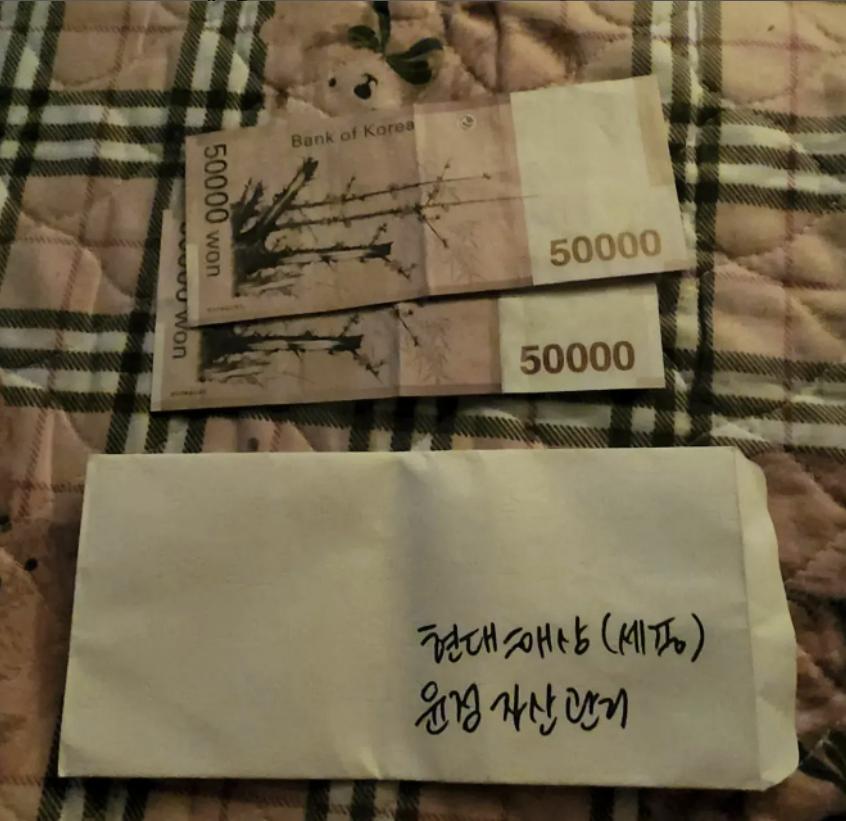 Bank of Korea
50000 won
50000
won
50000
현대해상 (세핑)
윤정 자산관리